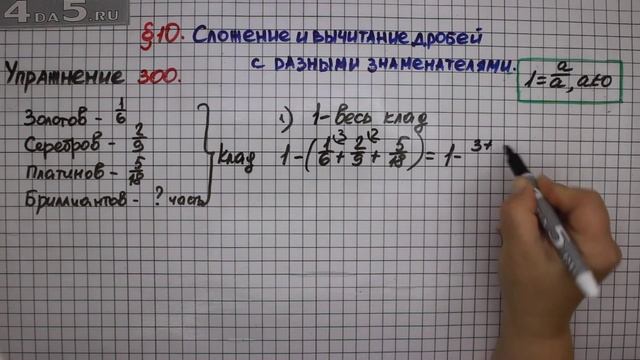 4DA5.RU
§10. Сложение и вычитание дробей
с разными знаменателями.
1 = a/a, a≠0
Упражнение 300.
Золотов - 1/6
Серебров - 2/9
Платинов - 5/18
Бриллиантов - ? часть
Клад
1) 1 - весь клад
1 - (1/6 + 2/9 + 5/18) = 1 - 3+
3 2